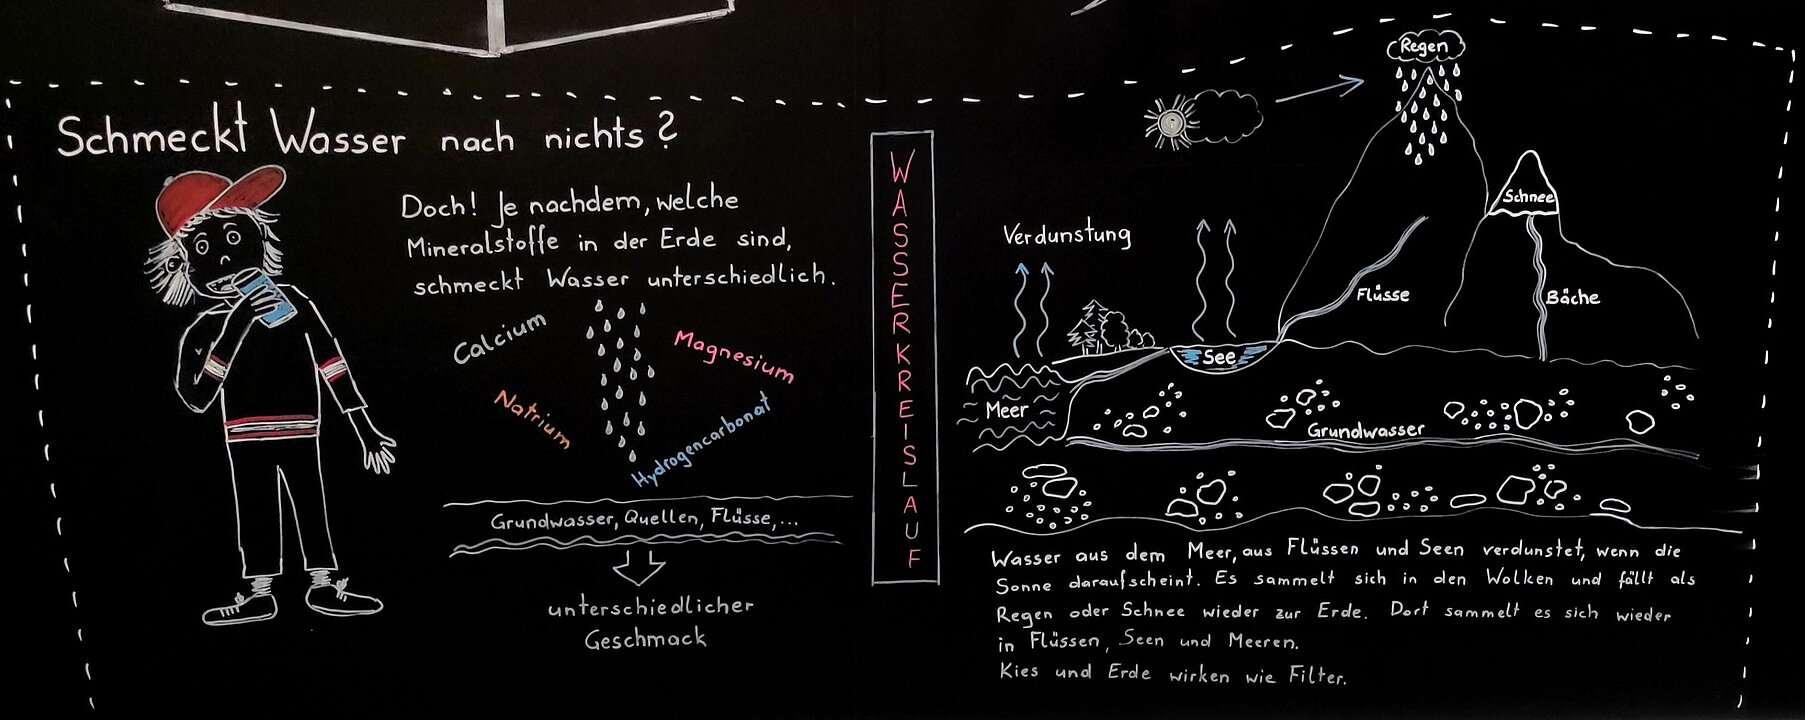 Schmeckt Wasser nach nichts?
Doch! Je nachdem, welche
Mineralstoffe in der Erde sind,
schmeckt Wasser unterschiedlich.
Calcium
Magnesium
Natrium
Hydrogencarbonat
Grundwasser, Quellen, Flüsse,...
unterschiedlicher
Geschmack
WASSERKREISLAUF
Regen
Schnee
Verdunstung
Flüsse
Bäche
See
Meer
Grundwasser
Wasser aus dem Meer, aus Flüssen und Seen verdunstet, wenn die
Sonne daraufscheint. Es sammelt sich in den Wolken und fällt als
Regen oder Schnee wieder zur Erde. Dort sammelt es sich wieder
in Flüssen, Seen und Meeren.
Kies und Erde wirken wie Filter.